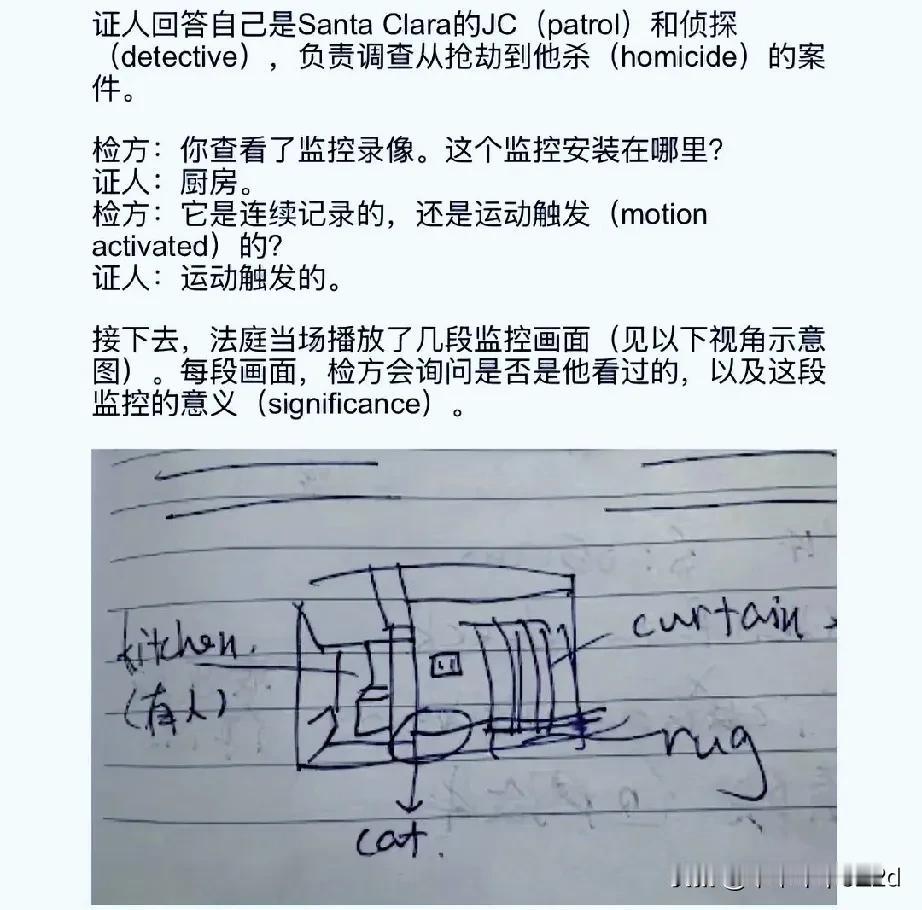 证人回答自己是Santa Clara的JC（patrol）和侦探
（detective），负责调查从抢劫到他杀（homicide）的案
件。
检方：你查看了监控录像。这个监控安装在哪里？
证人：厨房。
检方：它是连续记录的，还是运动触发（motion
activated）的？
证人：运动触发的。
接下去，法庭当场播放了几段监控画面（见以下视角示意
图）。每段画面，检方会询问是否是他看过的，以及这段
监控的意义（significance）。
kitchen.
(有人)
curtain
rug
cat.